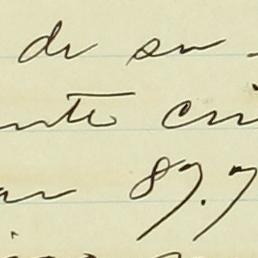 de su
nte cri
an 87.7